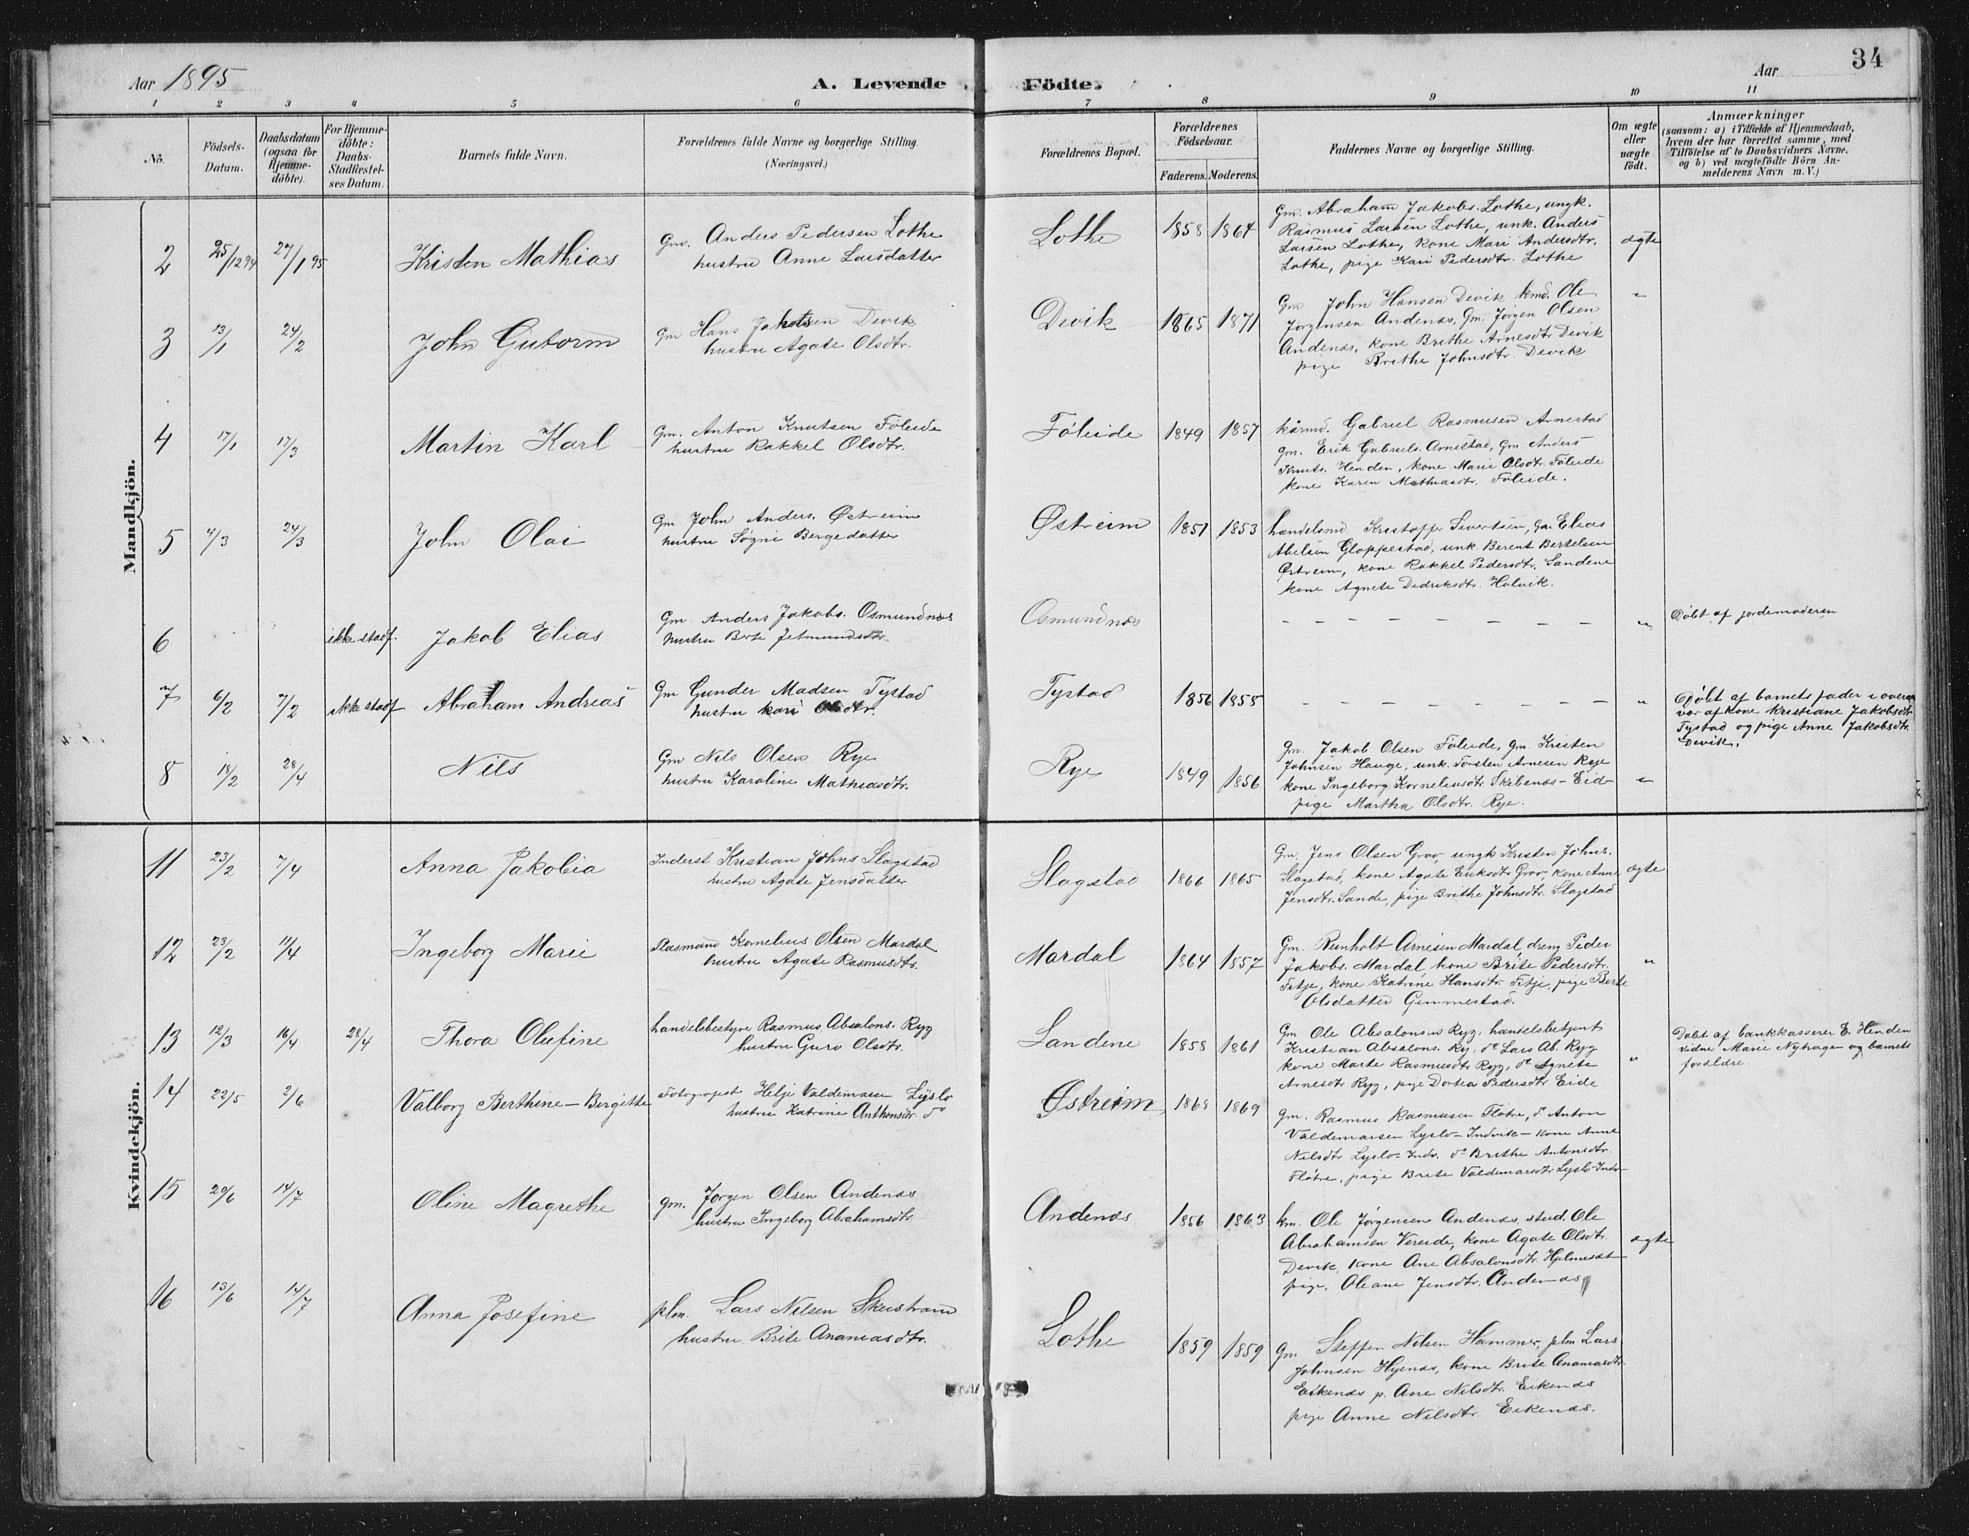 34
Aar 1895
A. Levende Födte.
Aar
1 2 3 4 5 6 7 8 9 10 11
No.
Födsels-Datum.
Daabsdatum (ogsaa for hjemme-döbte).
For Hjemme-döbte: Daabs-Stadfæstel-ses Datum.
Barnets fulde Navn.
Forældrenes fulde Navne og borgerlige Stilling (Næringsvei.)
Forældrenes Bopæl.
Forældrenes Födselsaar.
Faderens. Moderens.
Faddernes Navne og borgerlige Stilling.
Om ægte eller uægte födt.
Anmærkninger
(saasom: a) i Tilfælde af Hjemmedaab, hvem der har forrettet samme, med Tilföielse af to Daabsvidners Navne. og b) ved uægtefödte Börn An-melderens Navn m. V.)
Mandkjön.
2 25/12 94 27/1 95 Kristen Mathias
Gm. Anders Pedersen Lothe
hustru Anne Larsdatter
Lothe 1858 1864
Gm. Abraham Jakobs. Lothe, ungk.
Rasmus Larsen Lothe, unk. Anders
Larsen Lothe, kone Mari Andersdtr.
Lothe, pige Kari Pedersdtr. Lothe
ægte
3 13/1 24/2 John Guttorm
Gm Hans Jakobsen Devik
hustru Agate Olsdtr.
Devik 1865 1871
Gm John Hansen Devik kmd. Ole
Jørgensen Andenæs, Gm. Jørgen Olsen
Andenæs, kone Brithe Arnesdtr Devik
pige Brithe Johnsdtr. Devik
"
4 17/1 17/3 Martin Karl
Gm. Anton Knutsen Føleide
hustru Rakkel Olsdtr.
Føleide 1849 1857
kårmd. Gabriel Rasmusen Arnestad
gm. Erik Gabriels. Arnestad, Gm. Anders
Knuts. Henden, kone Marie Olsdtr. Føleide
kone Karen Mathiasdtr. Føleide.
5 4/3 24/3 John Olai
Gm John Anders. Østreim
hustru Søgni Bergedatter
Østreim 1851 1853
handelsmd Kristoffer Sivertsen, Gm. Elias
Abelsen Gloppestad, unk. Berent Bertelsen
Østreim, kone Rakkel Pedersdtr. Sandene
kone Agnete Dedriksdtr. Holvik.
6 ikke stadf. Jakob Elias
Gm. Anders Jakobs. Osmundnæs
hustru Jetmundsdtr.
Osmundnæs
– – – – – – – – "
Døbt af jordemoderen
7 6/2 7/2 ikke stadf Abraham Andreas
Gm Gunder Madsen Tystad
hustru kari
Tystad 1856 1855
– – – – – – – – "
Døbt af barnets fader i overvær af kone Kristiane Jakobsdtr.
Tystad og pige Anne Jakobsdtr.
Devik.
8 18/2 28/4 Nils
Gm Nils Olsen Rye
hustru Karoline Mathiasdtr.
Rye 1849 1856
Gm. Jakob Olsen Føleide, Gm. Kristen
Johnsen Hauge, unk. Torsten Arnesen Rye
kone Ingeborg Korneliusdtr Skibenæs – Eid–
pige Martha Olsdtr. Rye.
"
Kvindekjön.
11 23/2 7/4 Anna Jakobia
Inderst Kristian Johns Slagstad
hustru Agate Jensdatter
Slagstad 1866 1865
Gm. Jens Olsen Grov, ungk Kristen Johns.
Slagstad, kone Agate Eriksdtr Grov, kone Anne
Jensdtr. Sande, pige Brithe Johnsdtr. Slagstad
ægte
12 23/2 11/4 Ingeborg Marie
Plasmand Kornelius Olsen Mardal
hustru Agate Rasmusdtr.
Mardal 1864 1857
Gm. Reinholt Arnesen Mardal, dreng Peder
Jakobs. Mardal, kone Brite Pedersdtr.
Fitje, kone Katrine Hansdtr. Fitje, pige Berte
Olsdatter Gimmestad.
"
13 12/3 16/4 28/4 Thora Olufine
handelsbestyrer Rasmus Absalons. Ryg
hustru Guro Olsdtr.
Sandene 1858 1861
Gm Ole Absalonsen Ryg, handelsbetjent
Kristian Absalons. Ryg, do Lars Ab. Ryg
kone Marte Rasmusdtr Ryg, do Agnete
Arnesdtr Ryg, pige Dortea Pedersdtr Eide
"
Døbt af bankkasserer E. Henden
vidne Marie Nyhagen og barnets
forældre.
14 22/5 2/6 Valborg Berthine – Birgitte
Fotograpest Helje Valdemarsen Lyslo
hustru Katrine Anthonsdtr. do
Østreim 1868 1869
gm. Rasmus Rasmusen Fløtre, do Anton
Valdemarsen Lyslo – Indvik – kone Anne
Nilsdtr Lyslo – Indv. do Brithe Antonsdtr.
Fløtre, pige Brite Valdemarsdtr Lyslo – Indv–
15 20/6 14/7 Oline Magrethe
gm. Jørgen Olsen Andenæs
hustru Ingeborg Abrahamsdtr.
Andenæs 1856 1863
km. Ole Jørgensen Andenæs, stud. Ole
Abrahamsen Vereide, kone Agate Olsdtr.
Devik, kone Ane Absalonsdtr. Hjelmesæt
pige. Oleane Jensdtr. Andenæs
ægte
16 13/6 14/7 Anna Josefine
plm. Lars Nilsen Skeistrand
hustru Brite Ananiasdtr.
Lothe 1859 1859
Gm. Steffen Nilsen Hammer, plm Lars
Johnsen Hyenæs, kone Brite Ananiasdtr.
Eikenæs p. Ane Nilsdtr. Eikenæs
pige Anne Nilsdtr. Eikenæs.